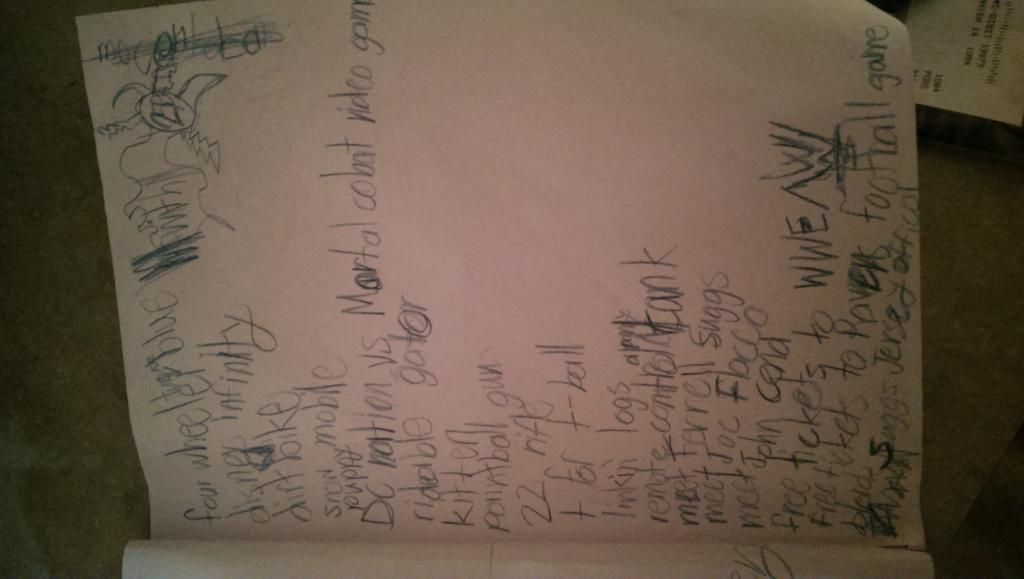 four wheeler blue with
disney infinity
dirt bike
snow mobile
DC nation vs Mortal cobat video game
ridable gator
kitten
paintball gun
22 rifle
t for t-ball
linkin logs
remote control tank
meet Terrell Suggs
meet Joe Flacco
meet John cena
free tickets to WWE W
free tickets to Ravens football game
Suggs Jersey official